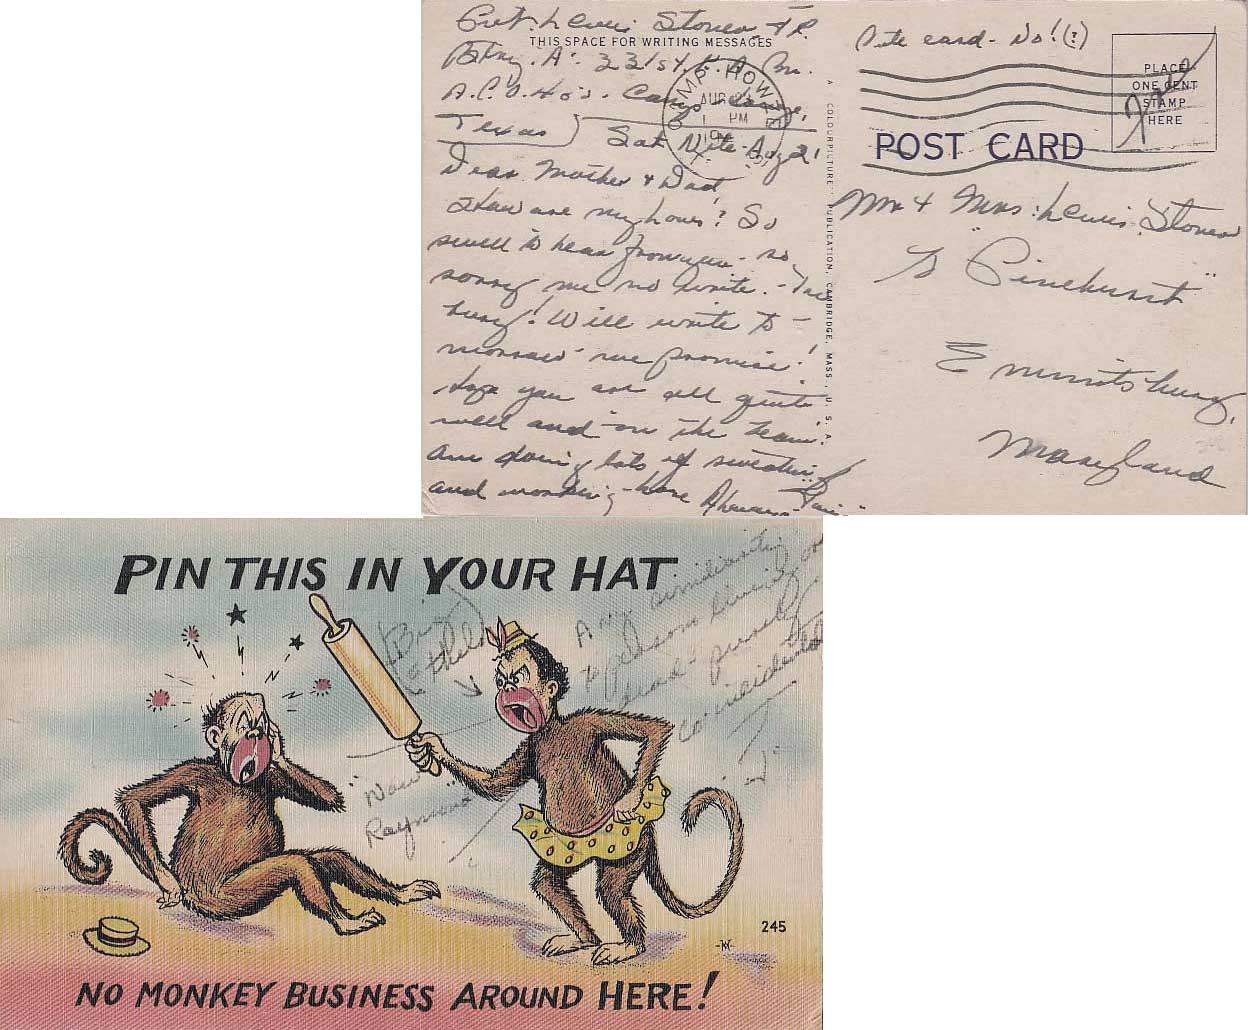 Pvt. Lewis Stoner Jr.
THIS SPACE FOR WRITING MESSAGES
Btry. A. 331st F. A. Bn.
A.P.O. Camp Howze,
Texas
Sat Nite - Aug 21
Dear Mother & Dad
How are my loves? So
swell to hear from you - so
sorry me no write. - Too
busy! Will write to-
morrow me promise!
Hope you are all quite
well and "on the beam".
Am doing lots of sweating
and working - love Always
CAMP HOWZE
AUG
1 PM
19
A COLOURPICTURE PUBLICATION, CAMBRIDGE, MASS., U. S. A.
Cute card - No! (?)
PLACE
ONE CENT
STAMP
HERE
Free
POST CARD
Mr & Mrs. Lewis Stoner
"Pinehurst"
Emmitsburg,
Maryland
PIN THIS IN YOUR HAT
(Big
Ethel)
Any similarity
to persons living or
dead - purely
coincidental
"J"
"Now
Raymond"
245
-KV-
NO MONKEY BUSINESS AROUND HERE!